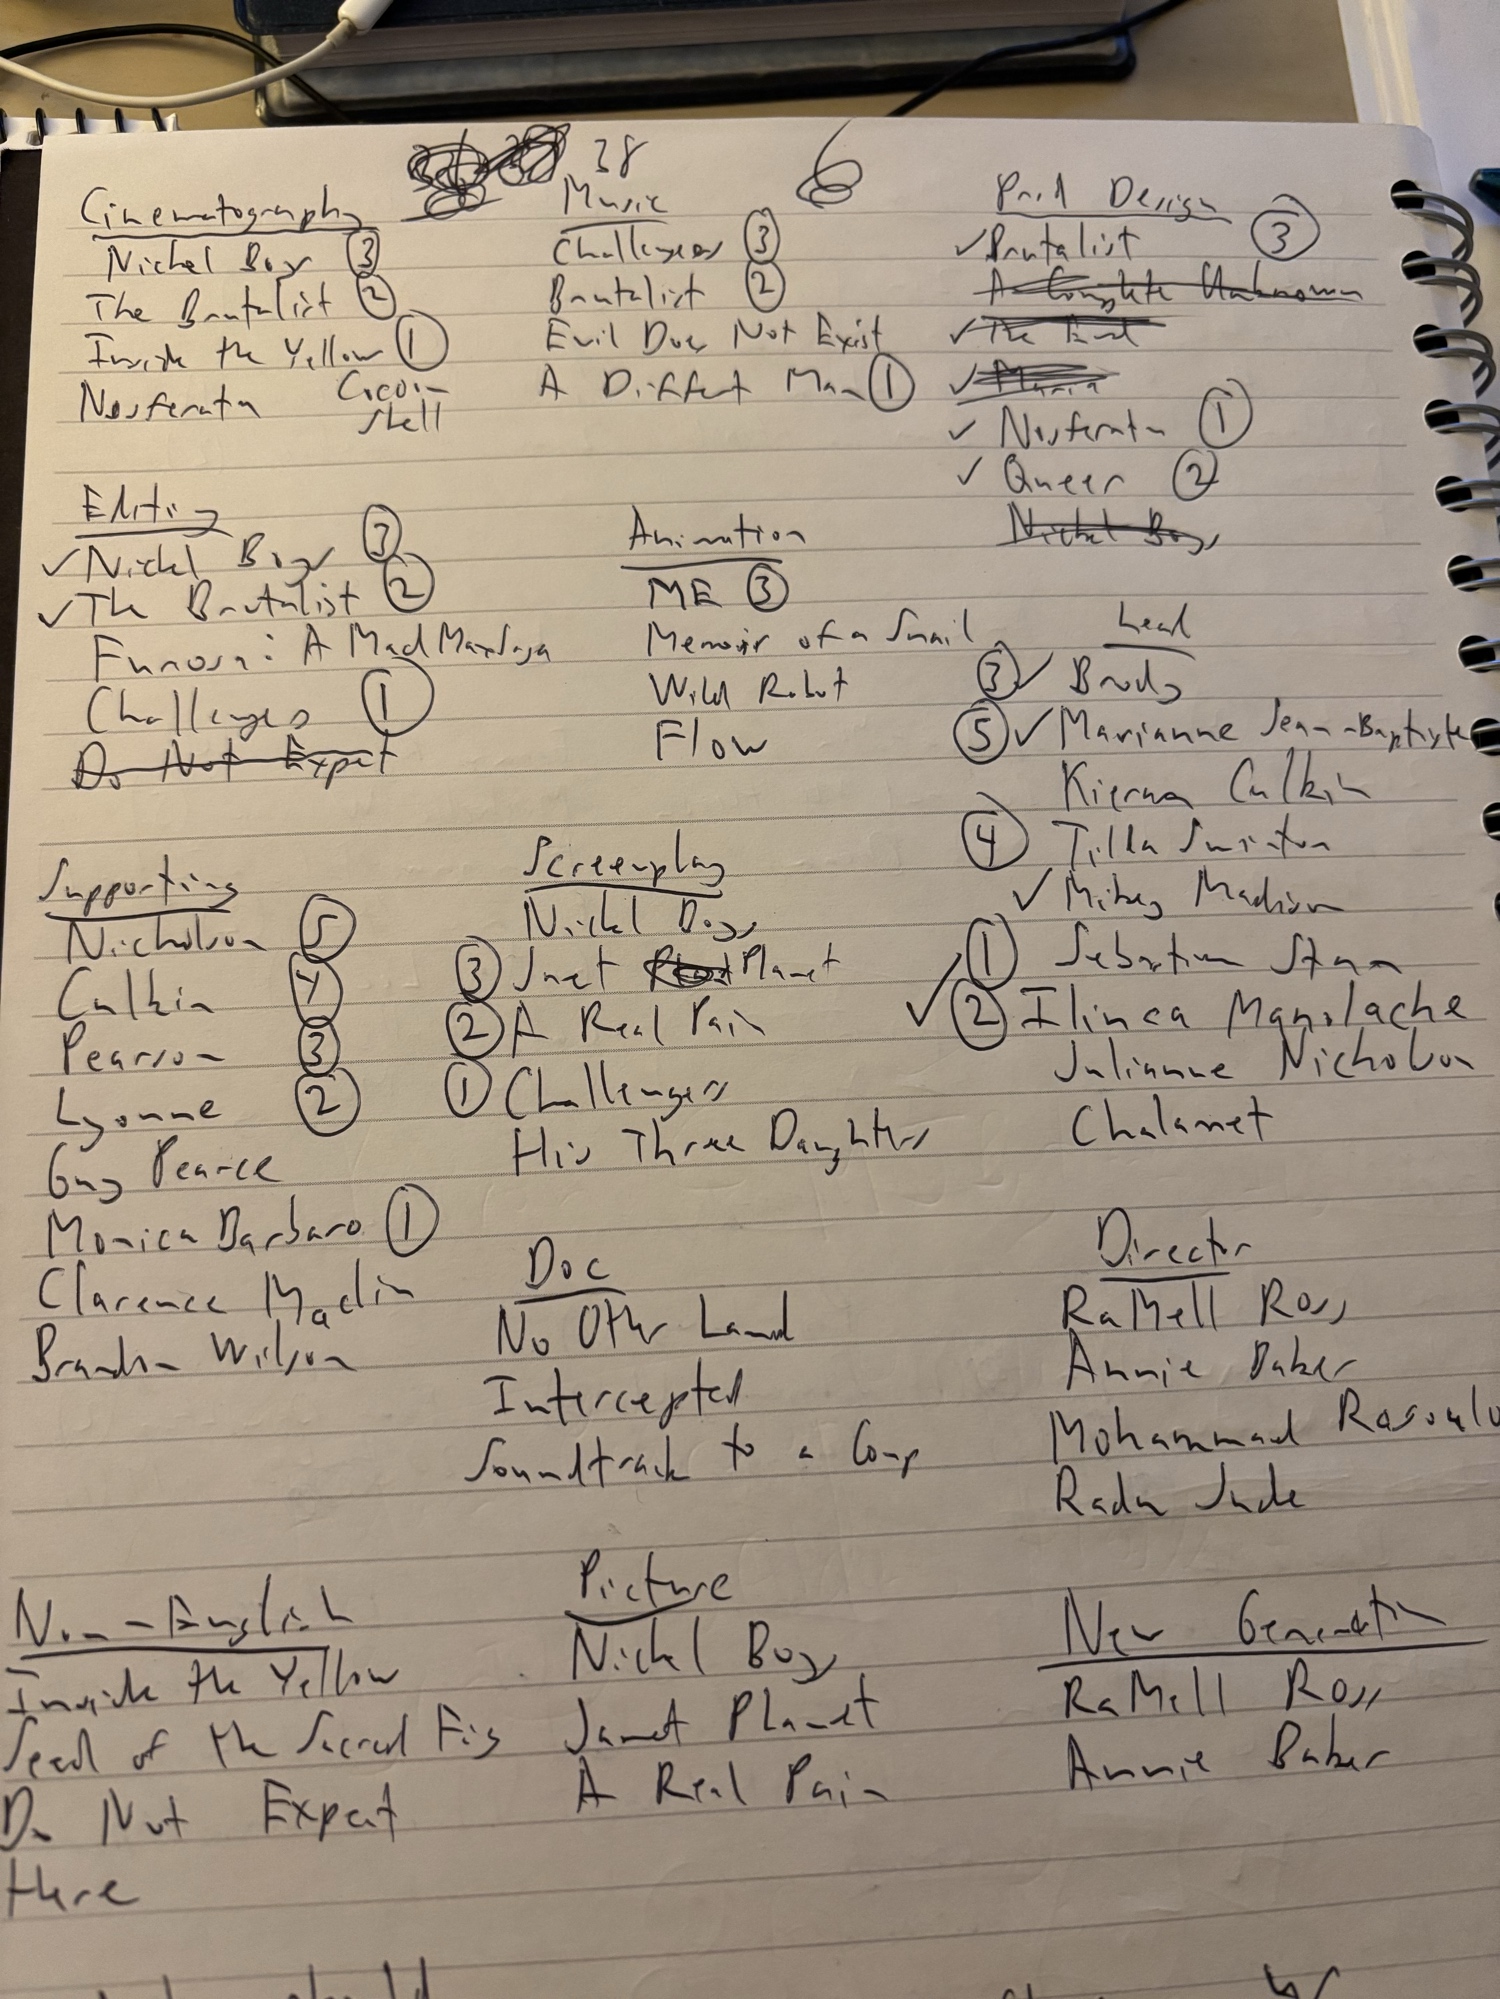 38
6
Cinematography
Nickel Boys 3
The Brutalist 2
Inside the Yellow 1
Cocoon
Shell
Nosferatu
Music
Challengers 3
Brutalist 2
Evil Does Not Exist
A Different Man 1
Prod Design
✓ Brutalist 3
A Complete Unknown
✓ The End
✓ Maria
✓ Nosferatu 1
✓ Queer 2
Nickel Boys
Editing
✓ Nickel Boys 3
✓ The Brutalist 2
Furiosa: A Mad Max Saga
Challengers 1
Do Not Expect
Animation
ME 3
Memoir of a Snail
Wild Robot
Flow
Lead
3 ✓ Brody
5 ✓ Marianne Jean-Baptiste
Kieran Culkin
4 Tilda Swinton
✓ Mikey Madison
1 Sebastian Stan
✓ 2 Ilinca Manolache
Julianne Nicholson
Chalamet
Supporting
Nicholson 5
Culkin 4
Pearson 3
Lyonne 2
Guy Pearce
Monica Barbaro 1
Clarence Maclin
Brandon Wilson
Screenplay
Nickel Boys
3 Janet Planet
2 A Real Pain
1 Challengers
His Three Daughters
Doc
No Other Land
Intercepted
Soundtrack to a Coup
Director
RaMell Ross
Annie Baker
Mohammad Rasoulo
Radu Jude
Non-English
Inside the Yellow
Seed of the Sacred Fig
Do Not Expect
Here
Picture
Nickel Boys
Janet Planet
A Real Pain
New Generation
RaMell Ross
Annie Baker